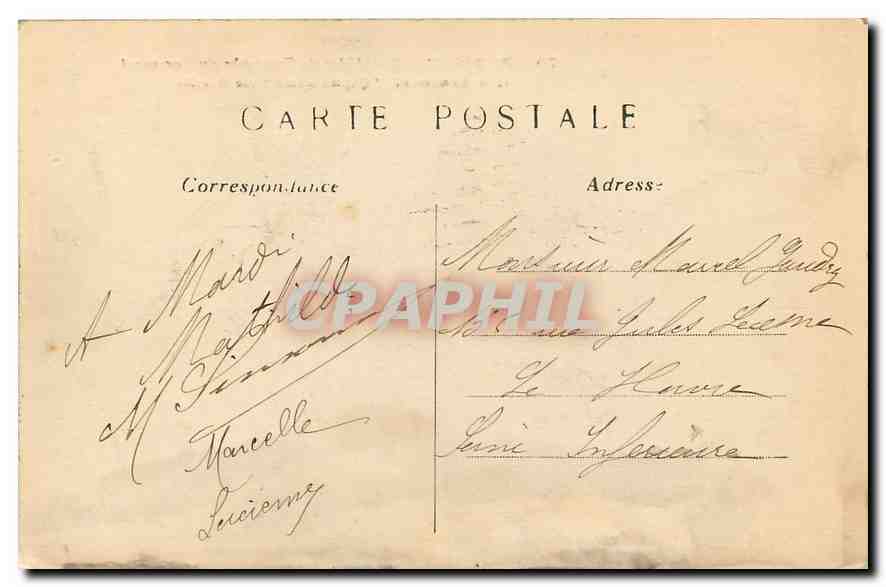 CARTE POSTALE
Correspondance
Adresse
A Mardi
Mathilde
M Simonne
Marcelle
Lucienne
Monsieur Marcel Gaudry
rue Jules Lecesne
Le Havre
Seine Inferieure
CPAPHIL